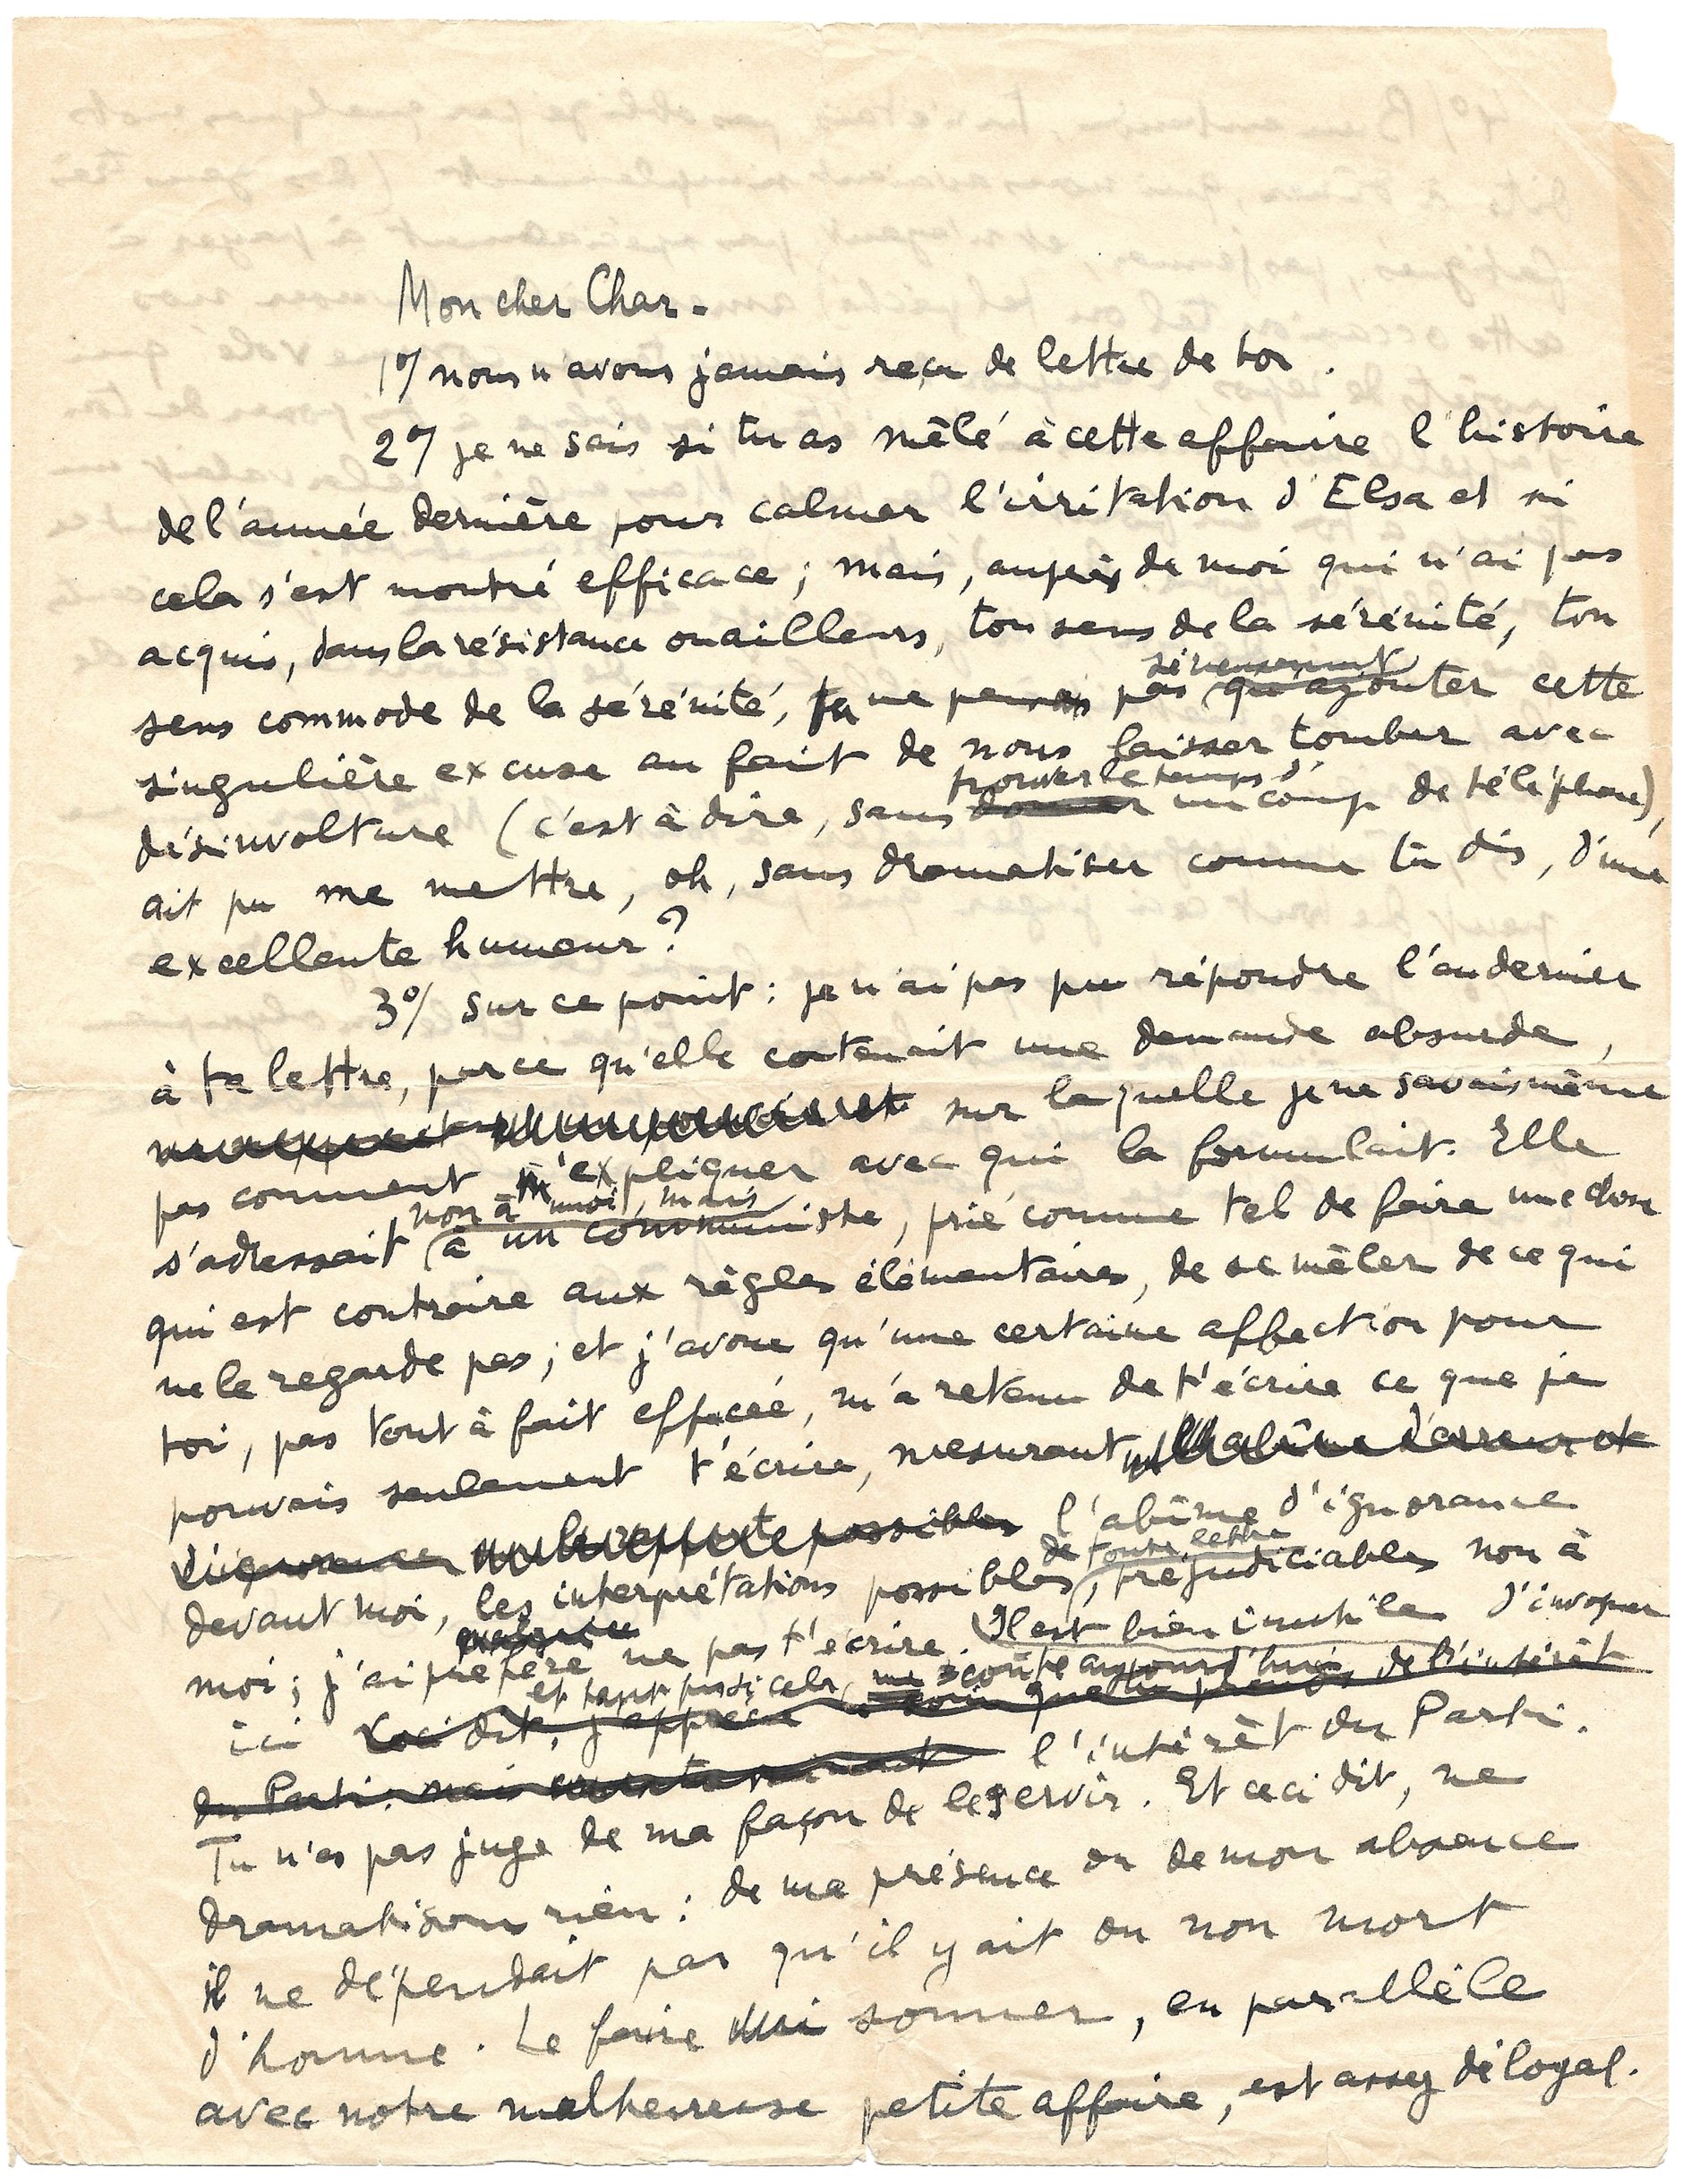 Mon cher Char -
1°/ nous n'avons jamais reçu de lettre de toi.
2°/ je ne sais si tu as mêlé à cette affaire l'histoire
de l'année dernière pour calmer l'irritation d'Elsa et si
cela s'est montré efficace ; mais, auprès de moi qui n'ai pas
acquis, dans la résistance ou ailleurs, ton sens de la sérénité, ton
sérieusement
sens commode de la sérénité, tu ne penses pas qu'ajouter cette
singulière excuse au fait de nous laisser tomber avec
trouver le temps d'
désinvolture (c'est à dire, sans donner un coup de téléphone),
ait pu me mettre, oh, sans dramatiser comme tu dis, d'une
excellente humeur ?
3°/ Sur ce point : je n'ai pas pu répondre l'an dernier
à ta lettre, parce qu'elle contenait une demande absurde,
sur laquelle je ne savais même
pas comment m'expliquer avec qui la formulait. Elle
non à moi, mais
s'adressait à un communiste, prié comme tel de faire une chose
qui est contraire aux règles élémentaires, de se mêler de ce qui
ne le regarde pas ; et j'avoue qu'une certaine affection pour
toi, pas tout à fait effacée, m'a retenu de t'écrire ce que je
pouvais seulement t'écrire, mesurant l'abîme d'erreur et
d'ignorance possibles l'abîme d'ignorance
de toute lettre
devant moi, les interprétations possibles, préjudiciables non à
moi ; j'ai préféré ne pas t'écrire. Il est bien inutile d'invoquer
ici Ceci dit, j'apprécie le soin que tu prends de l'intérêt
du Parti, mais l'intérêt du Parti.
Tu n'es pas juge de ma façon de le servir. Et ceci dit, ne
dramatisons rien : de ma présence ou de mon absence
il ne dépendait pas qu'il y ait ou non mort
d'homme. Le faire sonner, en parallèle
avec notre malheureuse petite affaire, est assez déloyal.